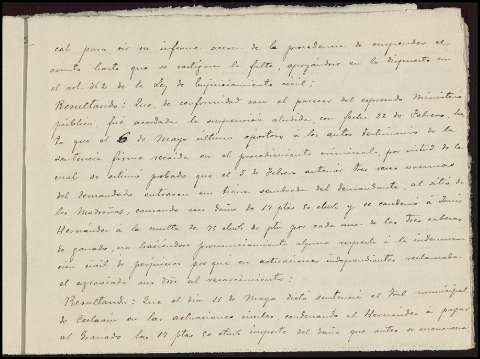 cal para oir su informe acerca de la procedencia de suspender el
hasta que se castigara la falta, apoyándose en lo dispuesto en
el art. 362 de la Ley de Enjuiciamiento civil;
Resultando: Que, de conformidad con el parecer del expresado Ministerio
público, fué acordada la suspensión aludida, con fecha 22 de Febrero, has
ta que el 6 de Mayo último aportóse á los autos testimonio de la
sentencia firme recaída en el procedimiento criminal, por virtud de la
cual se estimó probado que el 5 de Febrero anterior tres reses vacunas
del demandado entraron en tierra sembrada del demandante, al sitio de
los Madroñas, causando un daño de 17 ptas 50 cts y se condenó á
Hernandez á la multa de 75 cts de pta por cada una de las tres cabezas
de ganado, no haciéndose pronunciamiento alguno respecto á la indemniza
ción civil de perjuicios por que en actuaciones independientes reclamaba
el agraviado su resarcimiento;
Resultando: Que el dia 11 de Mayo dictó sentencia el Tral municipal
de en las actuaciones civiles condenando al Hernandez á pagar
al Granado las 17 ptas 50 cts importe del daño que antes se menciona